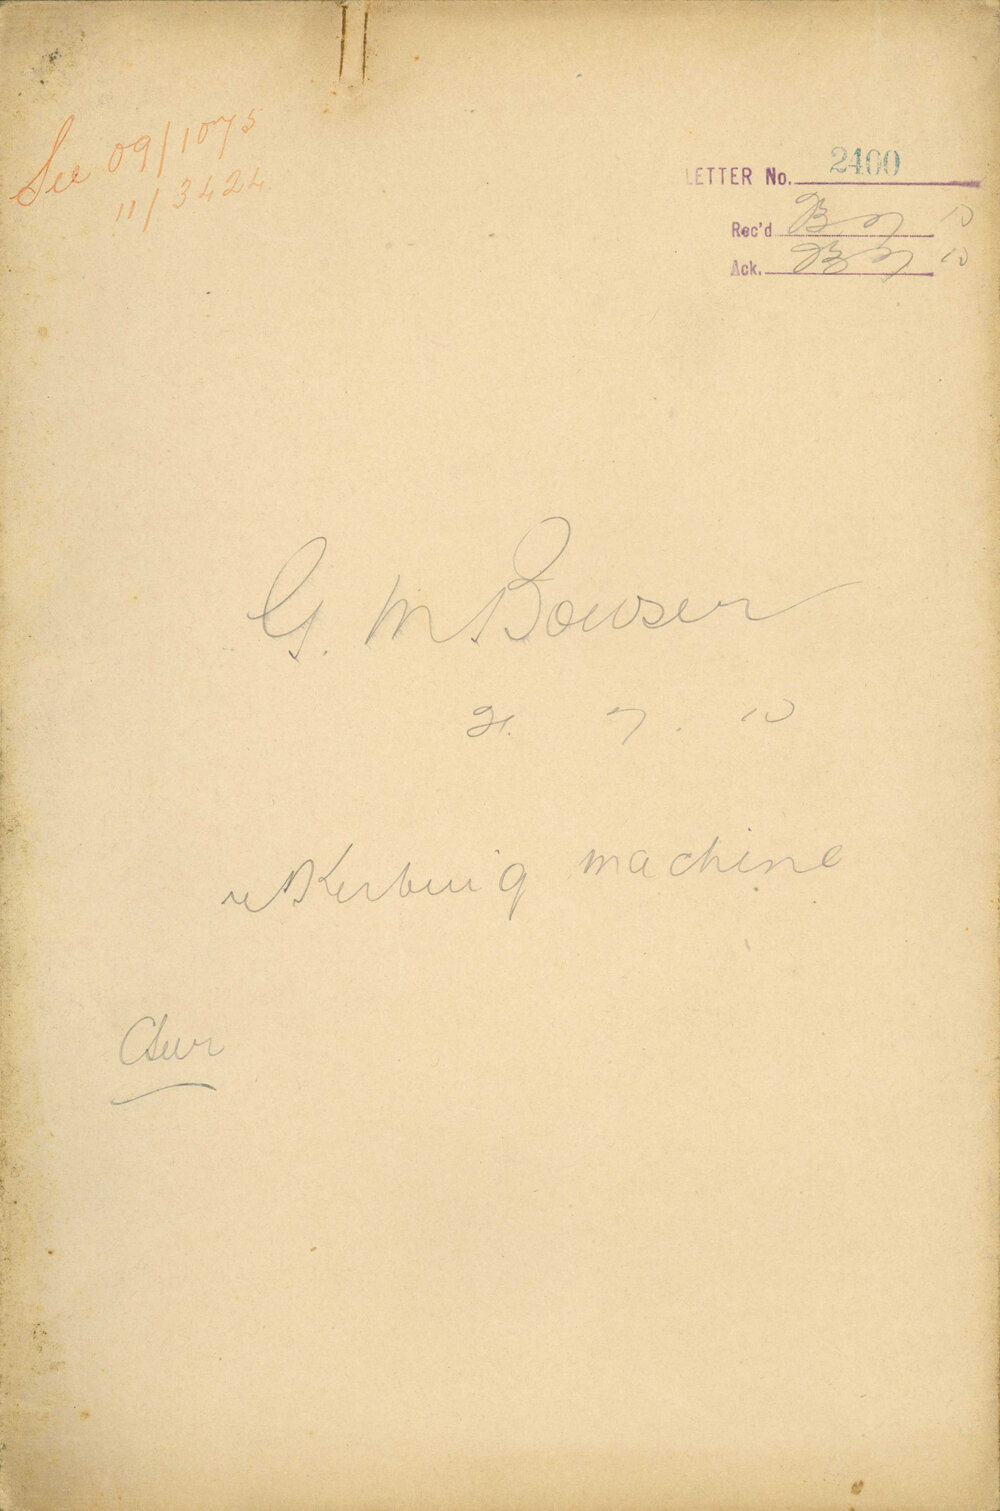 See 09/1075
11/3424
LETTER No. 2400
Rec'd 7 10
Ack. 7 10
G. M Bowser
21. 7. 10
re Kerbing machine